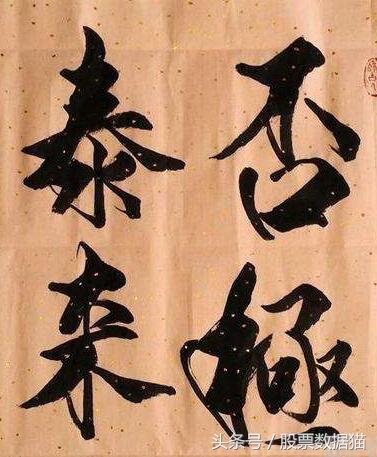 否極
泰来
头条号/股票数据猫